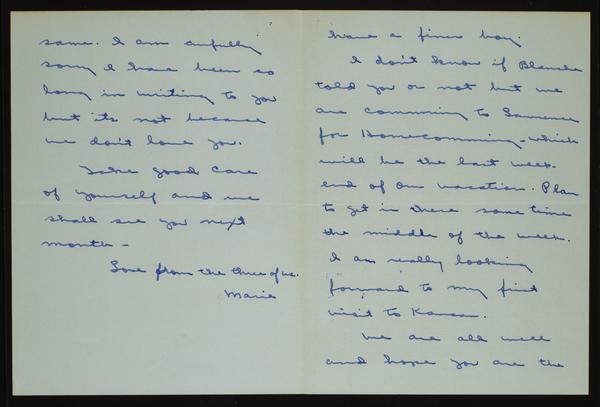 have a finer boy.
I don't know if Blanche
told you or not but we
are comming to Lawrence
for Homecomming - which
will be the last week-
end of our vacation. Plan
to get in there some time
the middle of the week.
I am really looking
forward to my first
visit to Kansas.
We are all well
and hope you are the
same. I am awfully
sorry I have been so
long in writing to you
but it's not because
we don't love you.
Take good care
of yourself and we
shall see you next
month -
Love from the three of us.
Marie